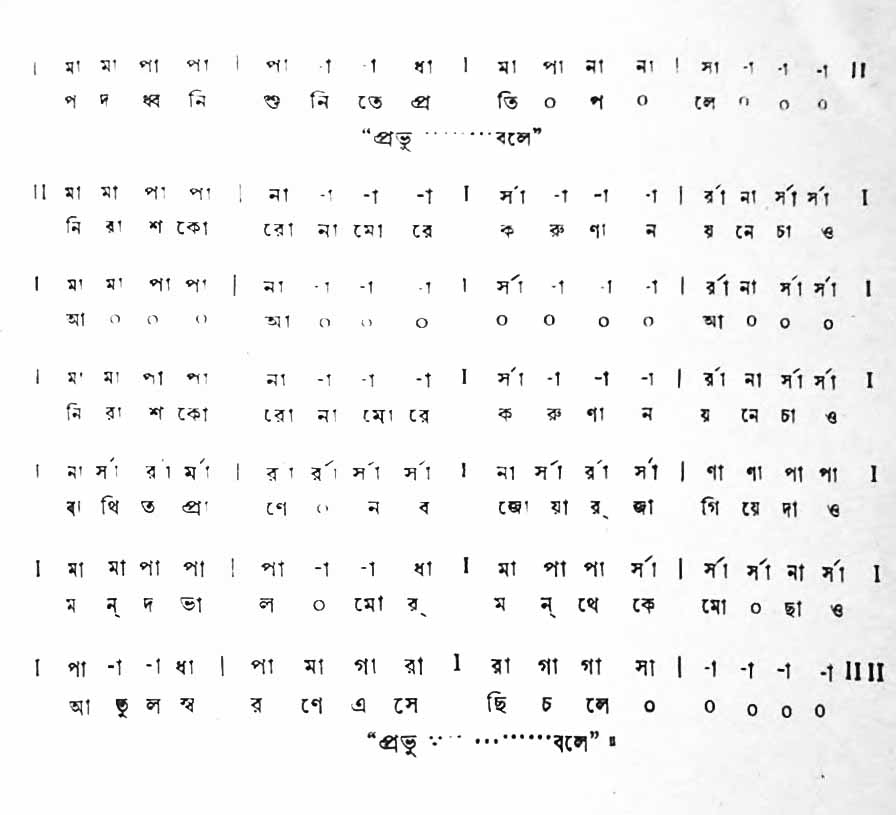 । মা মা পা পা | পা -া -া ধা I মা পা না না | সা -া -া -া II
প দ ধ্ব নি শু নি তে প্র তি ০ প ০ লে ০ ০ ০
“প্রভু ·········বলে”
II মা মা পা পা | না -া -া -া I র্সা -া -া -া | র্রা না র্সা র্সা I
নি রা শ কো রো না মো রে ক রু ণা ন য় নে চা ও
I মা মা পা পা | না -া -া -া I র্সা -া -া -া | র্রা না র্সা র্সা I
আ ০ ০ ০ আ ০ ০ ০ ০ ০ ০ ০ আ ০ ০ ০
I মা মা পা পা না -া -া -া I র্সা -া -া -া | র্রা না র্সা র্সা I
নি রা শ কো রো না মো রে ক রু ণা ন য় নে চা ও
I না র্সা র্রা র্মা | র্রা র্রা র্সা র্সা I না র্সা র্রা র্সা | ণা ণা পা পা I
ব্যা থি ত প্রা ণে ০ ন ব জো য়া র্ জা গি য়ে দা ও
I মা মা পা পা | পা -া -া ধা I মা পা পা র্সা | র্সা র্সা না র্সা I
ম ন্ দ ভা ল ০ মো র্ ম ন্ থে কে মো ০ ছা ও
I পা -া -া ধা | পা মা গা রা I রা গা গা সা | -া -া -া -া II II
আ তু ল স্ব র ণে এ সে ছি চ লে ০ ০ ০ ০ ০
“প্রভু ···· ·········বলে” ॥